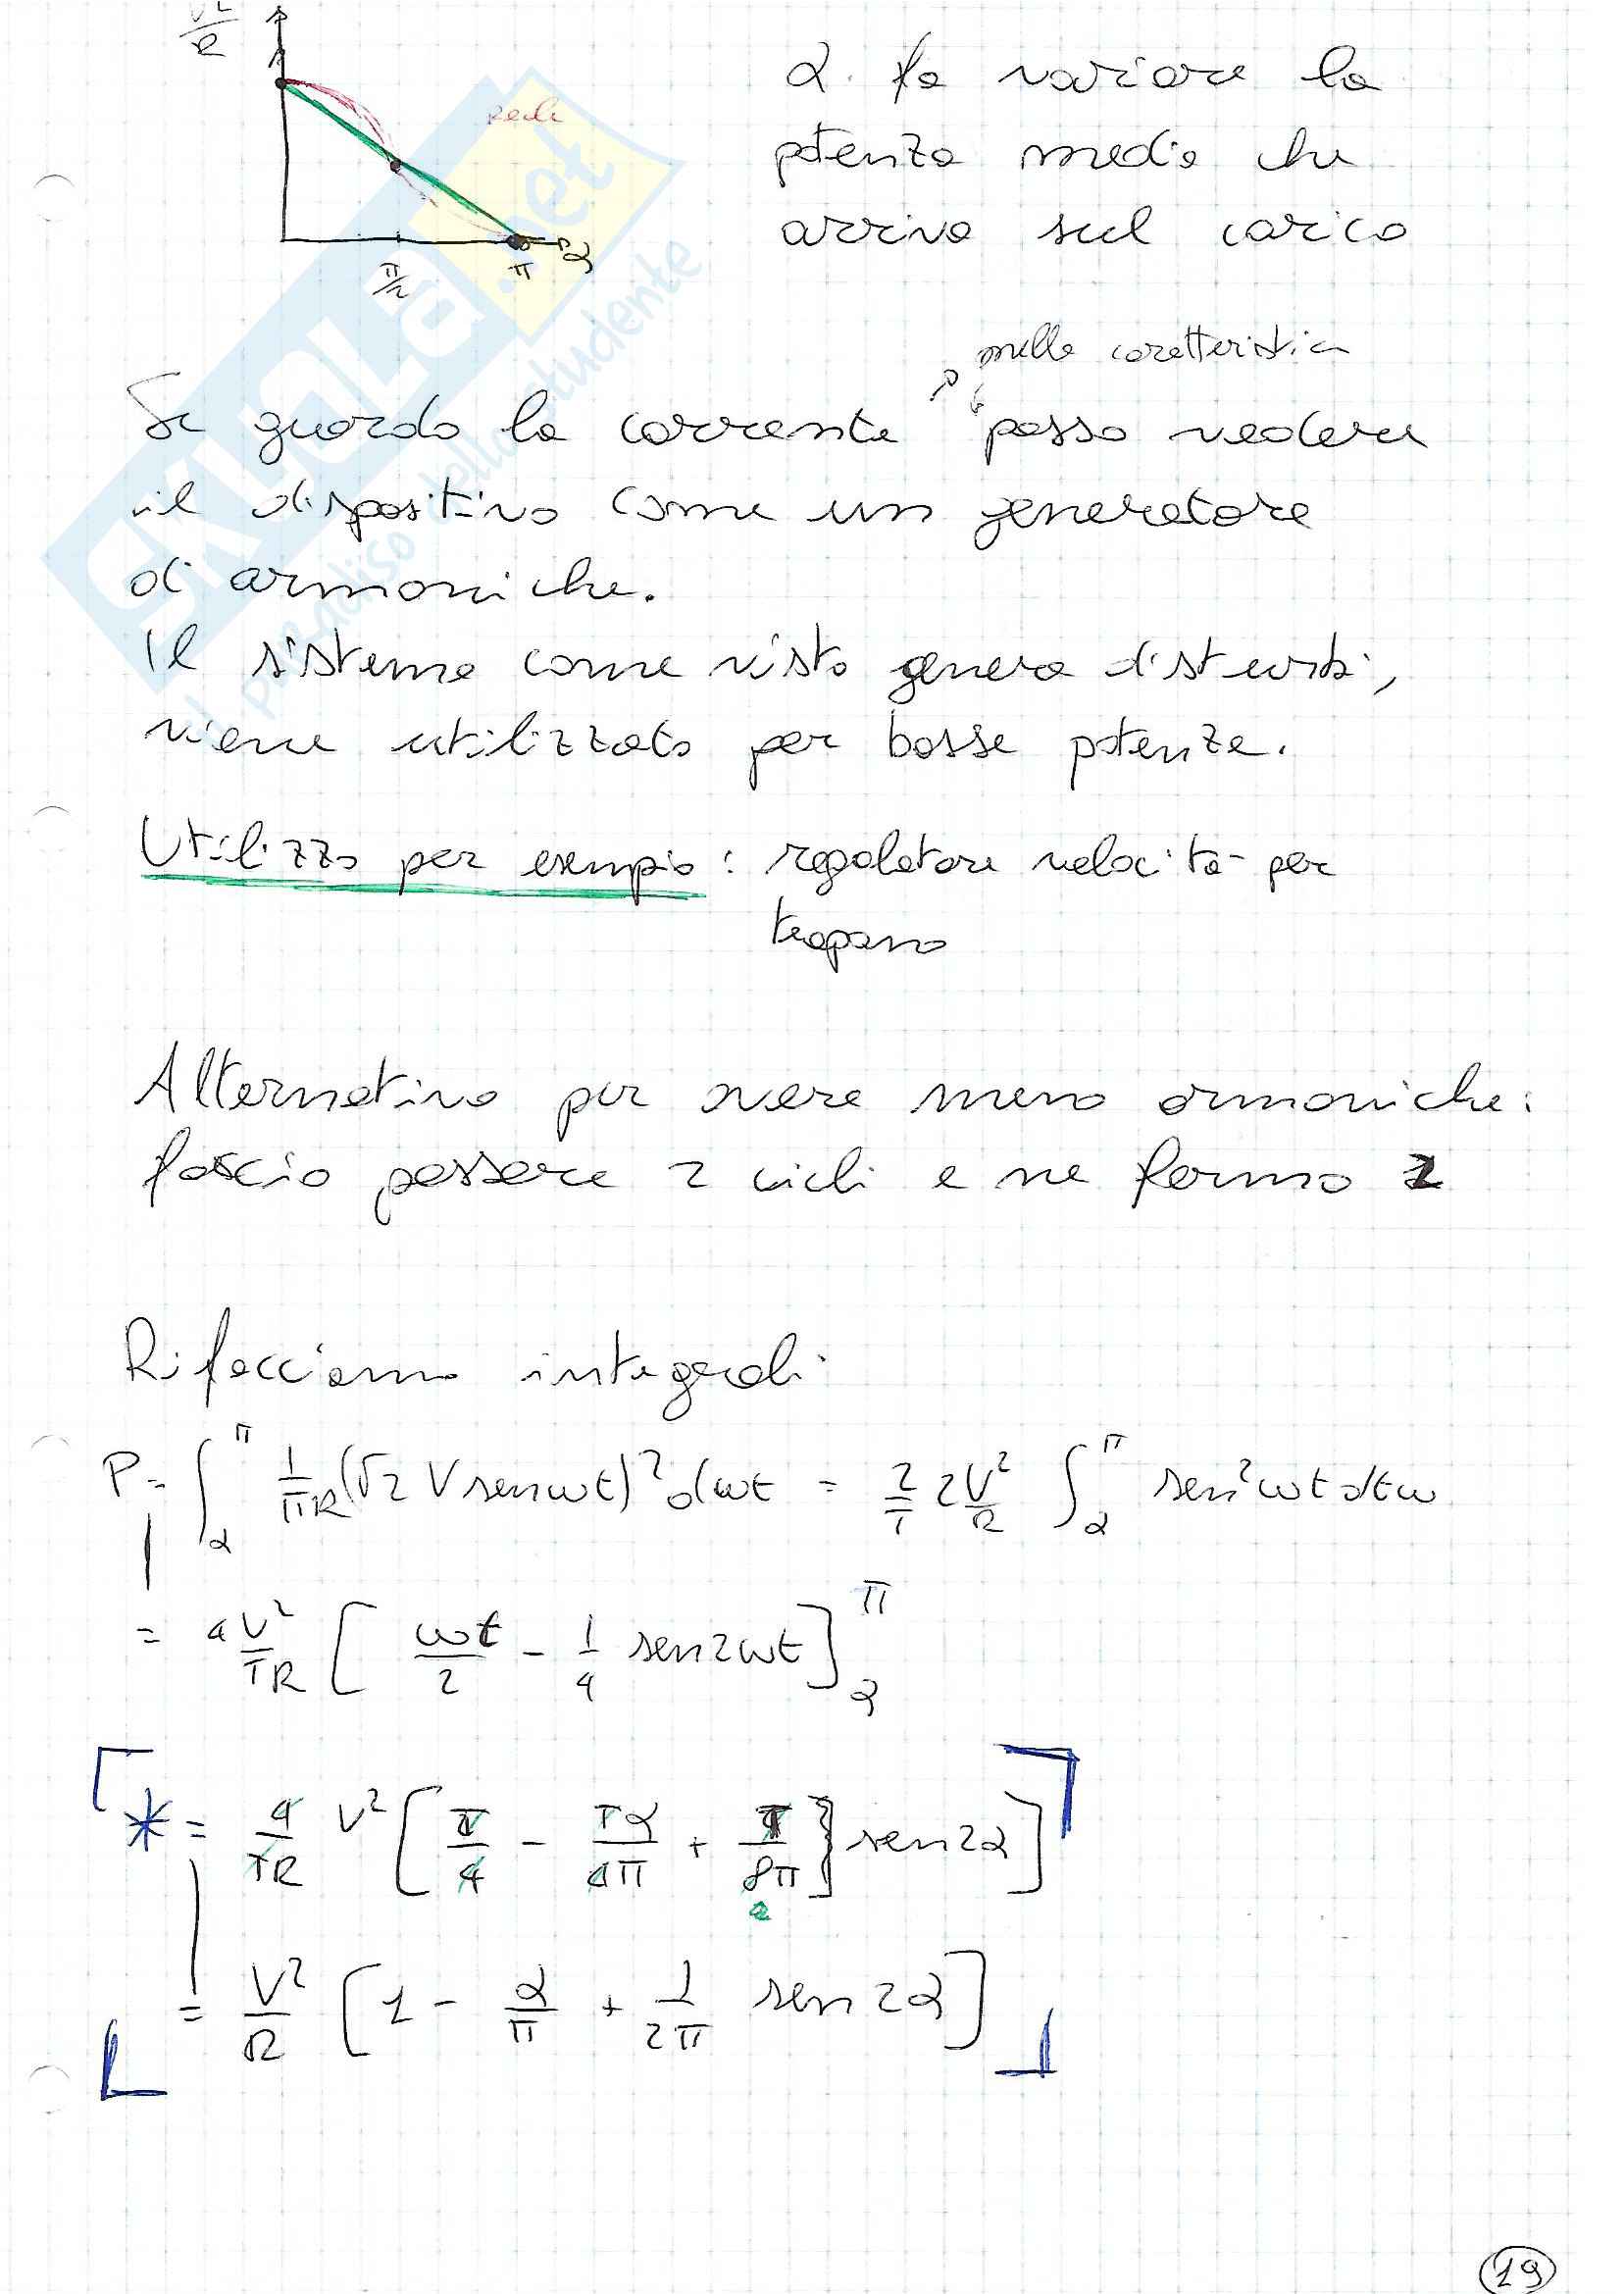 V²/R
reale
π/2
π
α
α fa variare la
potenza media che
arriva sul carico
SKUOLA.net
il paradiso dello studente
nella caratteristica
Se guardo la corrente posso vedere
il dispositivo come un generatore
di armoniche.
Il sistema come visto genera disturbi,
viene utilizzato per basse potenze.
Utilizzo per esempio: regolatore velocità per
trapano
Alternativa per avere meno armoniche:
fascio passare 2 cicli e ne fermo 2
Rifacciamo integrali:
P = ∫_α^π 1/πR (√2 V sen ωt)² dωt = 2/T 2V²/R ∫_α^π sen²ωt dtω
= 4V²/TR [ ωt/2 - 1/4 sen2ωt ]_α^π
* = 4/TR V² [ T/4 - Tα/4π + T/8π } sen2α ]
2
= V²/R [ 1 - α/π + 1/2π sen2α ]
19